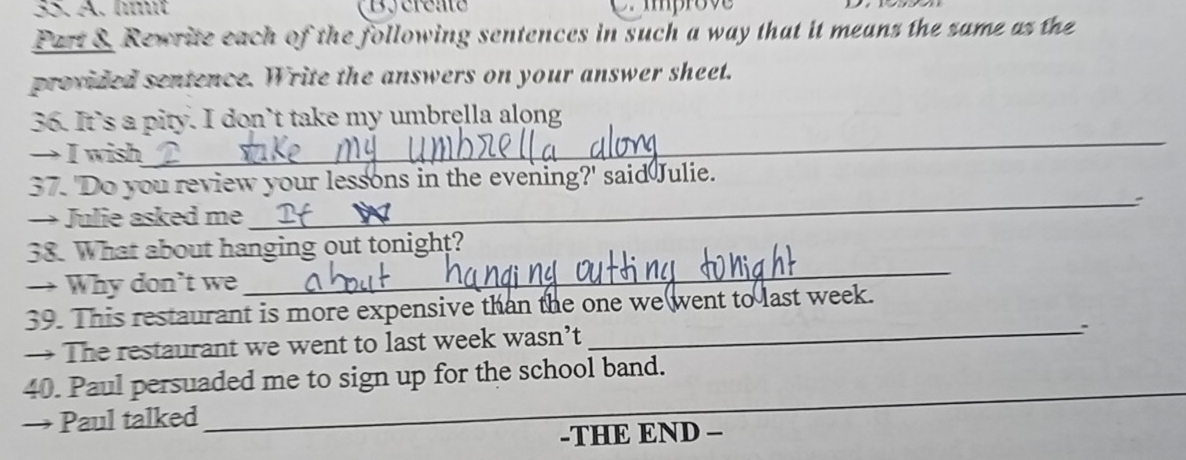 35. A. limit (B.) create C. improve
Part 8. Rewrite each of the following sentences in such a way that it means the same as the
provided sentence. Write the answers on your answer sheet.
36. It's a pity. I don't take my umbrella along
→ I wish I take my umbrella along
37. 'Do you review your lessons in the evening?' said Julie.
→ Julie asked me If
38. What about hanging out tonight?
→ Why don't we about hanging outting tonight
39. This restaurant is more expensive than the one we went to last week.
→ The restaurant we went to last week wasn't
40. Paul persuaded me to sign up for the school band.
→ Paul talked
-THE END –